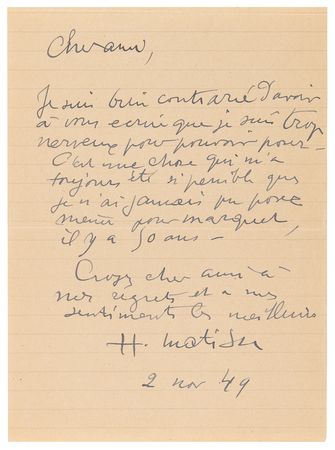 Cher ami,
Je suis bien contrarié d'avoir
à vous écrire que je suis trop
nerveux pour pouvoir poser –
C'est une chose qui m'a
toujours été si pénible que
je n'ai jamais pu poser
même pour marquet,
il y a 50 ans –
Croyez cher ami à
mes regrets et a mes
sentiments les meilleurs
H. matisse
2 nov 49